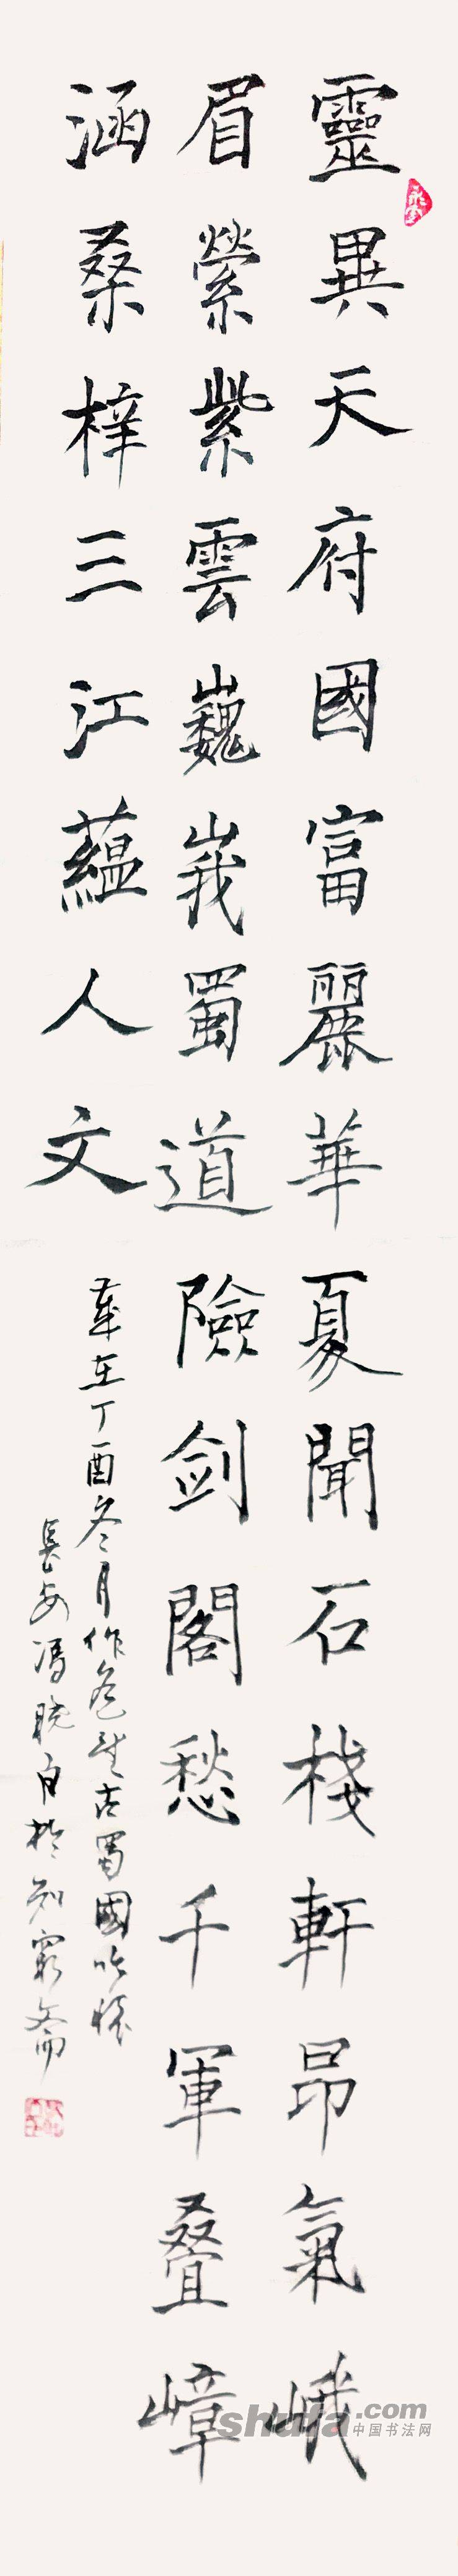 靈異天府國富麗華夏聞石棧軒昂氣峨
眉縈紫雲巍峩蜀道險剑閣愁千軍叠嶂
涵桑梓三江蘊人文
歲在丁酉冬月作邑聖古蜀國吟懷
長安馮曉白於知窮齋
shufa.com
中国书法网